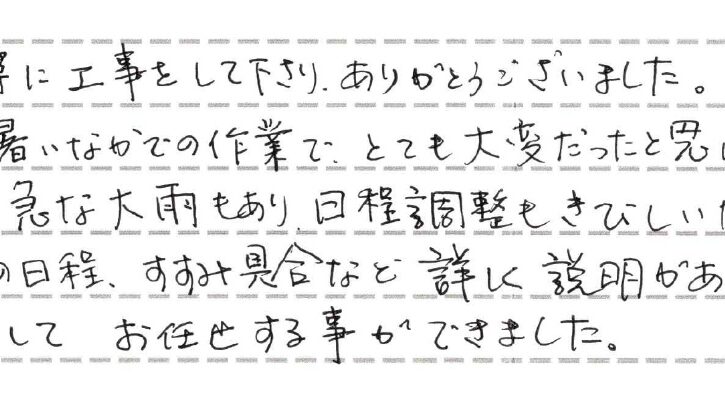 に工事をして下さり、ありがとうございました。
暑いなかでの作業で、とても大変だったと思い
急な大雨もあり、日程調整もきびしいな
の日程、すすみ具合など詳しく説明があ
して お任せする事ができました。